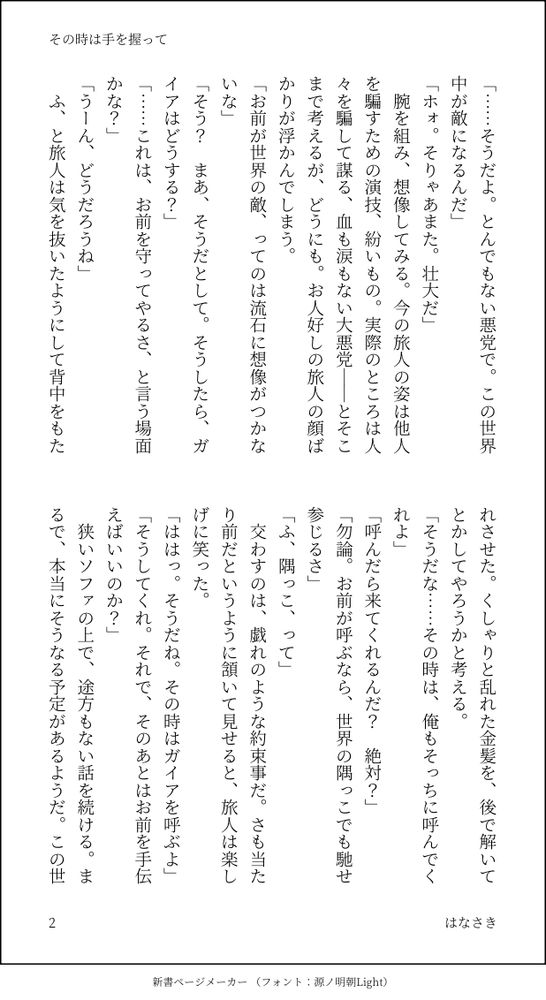 その時は手を握って
「……そうだよ。とんでもない悪党で。この世界
中が敵になるんだ」
「ホォ。そりゃあまた。壮大だ」
　腕を組み、想像してみる。今の旅人の姿は他人
を騙すための演技、紛いもの。実際のところは人
々を騙して謀る、血も涙もない大悪党――とそこ
まで考えるが、どうにも。お人好しの旅人の顔ば
かりが浮かんでしまう。
「お前が世界の敵、ってのは流石に想像がつかな
いな」
「そう？　まあ、そうだとして。そうしたら、ガ
イアはどうする？」
「……これは、お前を守ってやるさ、と言う場面
かな？」
「うーん、どうだろうね」
　ふ、と旅人は気を抜いたようにして背中をもた
れさせた。くしゃりと乱れた金髪を、後で解いて
とかしてやろうかと考える。
「そうだな……その時は、俺もそっちに呼んでく
れよ」
「呼んだら来てくれるんだ？　絶対？」
「勿論。お前が呼ぶなら、世界の隅っこでも馳せ
参じるさ」
「ふ、隅っこ、って」
　交わすのは、戯れのような約束事だ。さも当た
り前だというように頷いて見せると、旅人は楽し
げに笑った。
「ははっ。そうだね。その時はガイアを呼ぶよ」
「そうしてくれ。それで、そのあとはお前を手伝
えばいいのか？」
　狭いソファの上で、途方もない話を続ける。ま
るで、本当にそうなる予定があるようだ。この世
はなさき
2
新書ページメーカー（フォント：源ノ明朝Light）